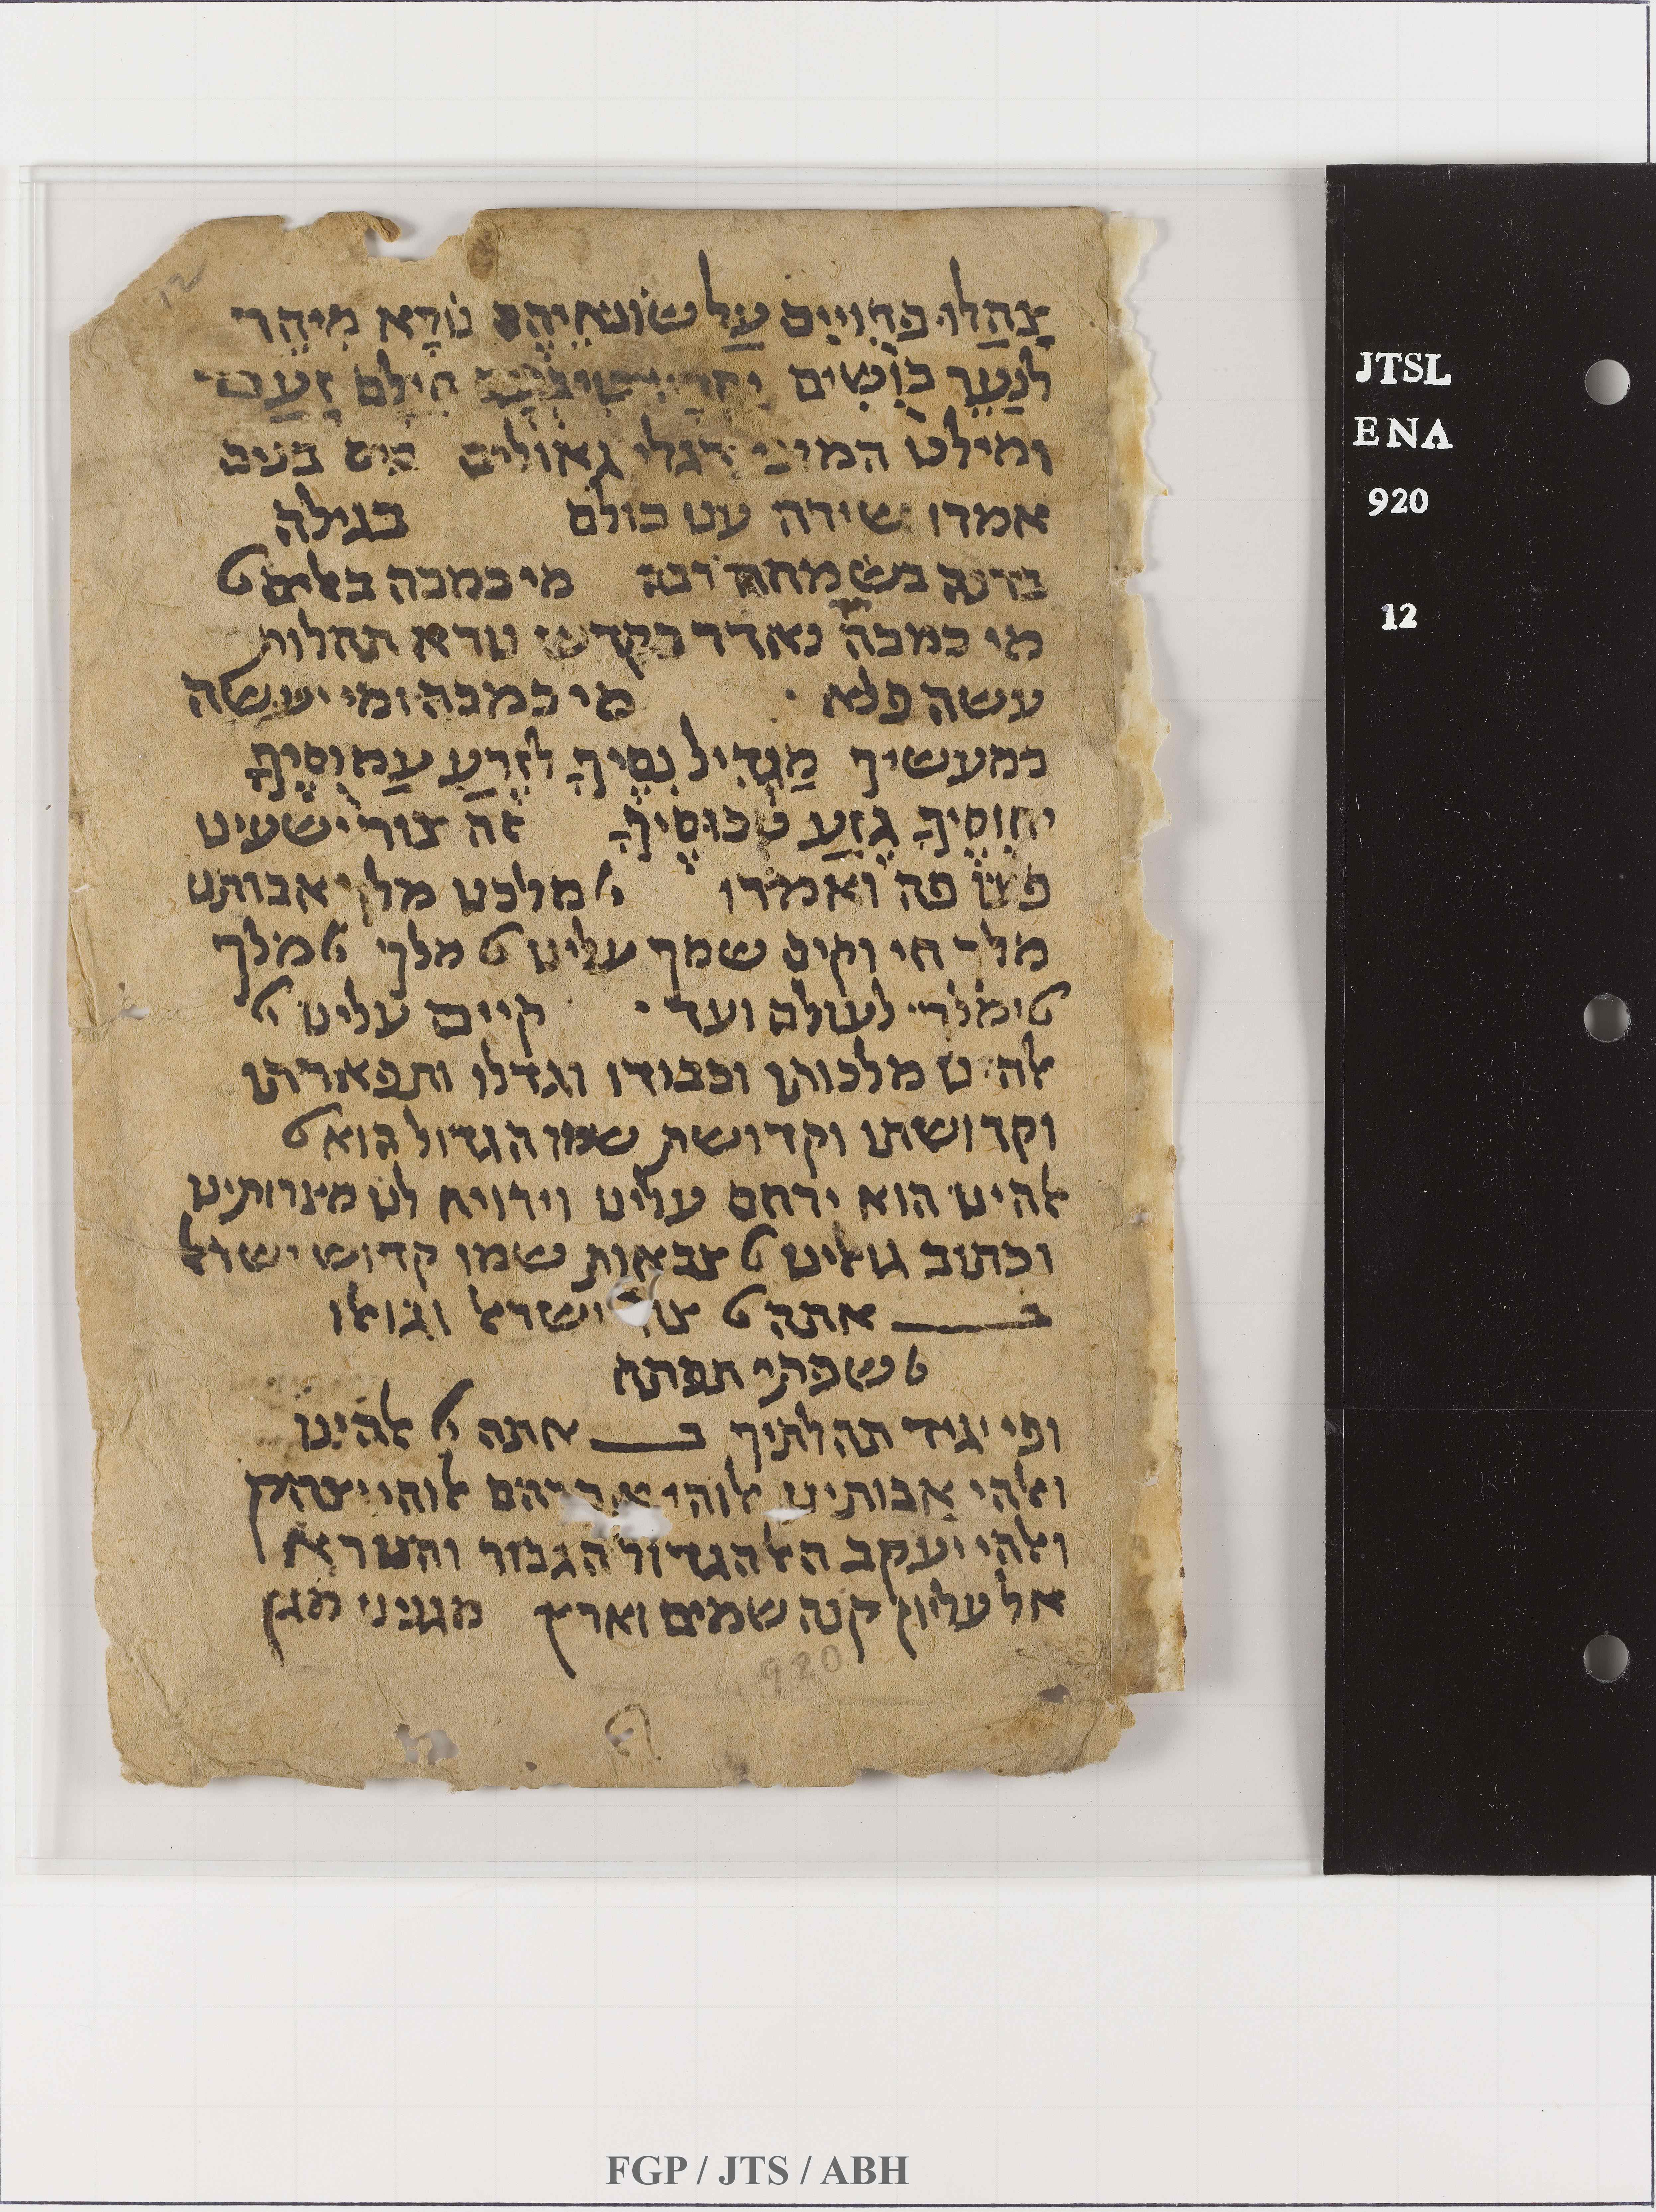 צָהֲלוּ פְדוּיִים עַל שׂוֹנְאֵיהֶם נוֹרָא מִיהֵר
לְנַעֵר כּוּשִׁים חֵילָם זָעַם
ומילט המוני דגלי גאולים
אמרו שירה ענו כולם בגילה
ברנה בשמחה רבה מי כמכה באלים
מי כמכה נאדר בקדש נורא תהלות
עשה פלא מי כמכה ומי יעשה
כמעשיך מַגְדִיל נִסֶיךָ לְזֶרַע עֲמוּסֶיךָ
יחוסֶיךָ גֶזַע טכוסֶיךָ זה צור ישעינו
פצו פה ואמרו מלכנו מלך אבותנו
מלך חי וקים שמך עלינו מלך מלך
ימלך לעולם ועד קיים עלינו
אלהינו מלכותו וכבודו וגדלו ותפארתו
וקדושתו וקדושת שמו הגדול הוא
אלהינו הוא ירחם עלינו וירויח לנו מצרותינו
וכתוב גואלינו צבאות שמו קדוש ישראל
ב אתה צור ישראל וגואלו
שפתי תפתח
ופי יגיד תהלתיך ב אתה אלהינו
ואלהי אבותינו אלוהי אברהם אלוהי יצחק
ואלהי יעקב האל הגדול הגבור והנורא
אל עליון קנה שמים וארץ מגניני מגן
920
12
JTSL
ENA
920
12
FGP / JTS / ABH